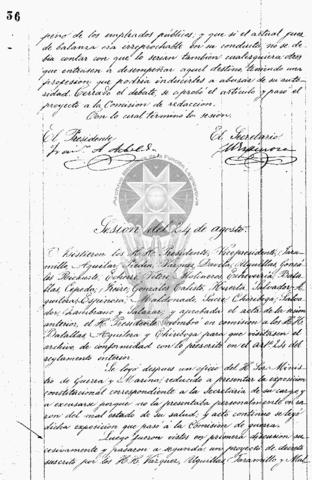 36
pero de los empleados públicos, y que si el actual juez
de balanza era irreprochable en su conducta, no se de-
bia contar con que lo serian tambien cualesquiera otros
que entrasen á desempeñar aquel destino teniendo una
profesion que podria inducirles á abusar de su auto-
ridad. Cerrado el debate, se aprobó el artículo y pasó el
proyecto á la Comision de redaccion.
Con lo cual terminó la sesion.
El Presidente El Secretario
Sesion del 24 de agosto.
Asistieron los H.H. Presidente, Vicepresidente, Jara-
millo, Aguilar, Piedra, Vázquez, Dávila, Uquillas, Gonzá-
Espinosa, Maldonado, Sucre, Chiriboga, Salva-
dor, Zambrano y Salazar, y aprobada el acta de la sesion
anterior, el H. Presidente nombró en comision á los H.H.
Batallas, Aguilera y Chiriboga para que visitasen el
archivo de conformidad con lo prescrito en el art. 24 del
reglamento interior.
Se leyó despues un oficio del H. Sor. Minis-
tro de Guerra y Marina, reducido á presentar la exposicion
constitucional correspondiente á la Secretaría de su cargo y
á excusarse porque no la presentaba personalmente en ra-
zon del mal estado de su salud; y acto continuo se leyó
dicha exposicion que pasó á la Comision de guerra.
Luego fueron vistos en primera discusion su-
cesivamente y pasaron á segunda: un proyecto de decreto
suscrito por los H.H. Vázquez, Uquillas, Jaramillo y Mal-